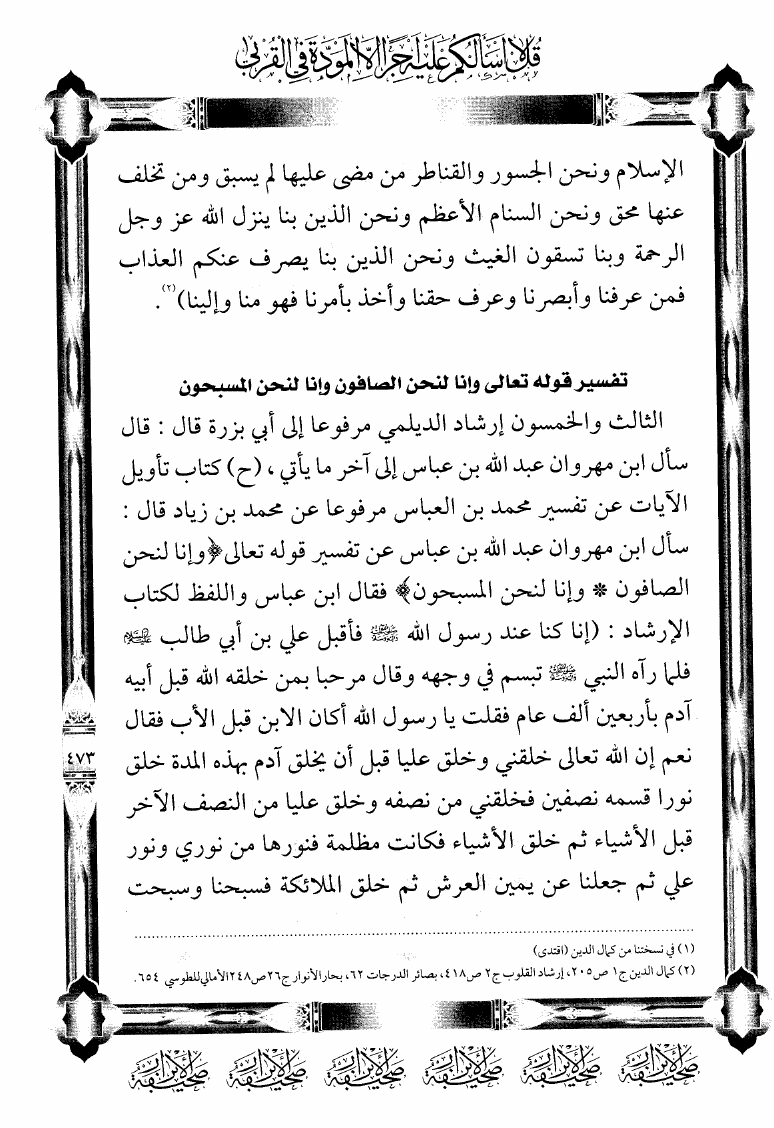 قل لا أسألكم عليه أجرا إلا المودة في القربى
الإسلام ونحن الجسور والقناطر من مضى عليها لم يسبق ومن تخلف
عنها محق ونحن السنام الأعظم ونحن الذين بنا ينزل الله عز وجل
الرحمة وبنا تسقون الغيث ونحن الذين بنا يصرف عنكم العذاب
فمن عرفنا وأبصرنا وعرف حقنا وأخذ بأمرنا فهو منا وإلينا)(٢).
تفسير قوله تعالى وإنا لنحن الصافون وإنا لنحن المسبحون
الثالث والخمسون إرشاد الديلمي مرفوعا إلى أبي بزرة قال : قال
سأل ابن مهروان عبد الله بن عباس إلى آخر ما يأتي ، (ح) كتاب تأويل
الآيات عن تفسير محمد بن العباس مرفوعا عن محمد بن زياد قال :
سأل ابن مهروان عبد الله بن عباس عن تفسير قوله تعالى ﴿وإنا لنحن
الصافون * وإنا لنحن المسبحون﴾ فقال ابن عباس واللفظ لكتاب
الإرشاد : (إنا كنا عند رسول الله ﷺ فأقبل علي بن أبي طالب
فلما رآه النبي ﷺ تبسم في وجهه وقال مرحبا بمن خلقه الله قبل أبيه
آدم بأربعين ألف عام فقلت يا رسول الله أكان الابن قبل الأب فقال
نعم إن الله تعالى خلقني وخلق عليا قبل أن يخلق آدم بهذه المدة خلق
نورا قسمه نصفين فخلقني من نصفه وخلق عليا من النصف الآخر
قبل الأشياء ثم خلق الأشياء فكانت مظلمة فنورها من نوري ونور
علي ثم جعلنا عن يمين العرش ثم خلق الملائكة فسبحنا وسبحت
٤٧٣
(١) في نسختنا من كمال الدين (اقتدى)
(٢) كمال الدين ج١ ص٢٠٥، إرشاد القلوب ج٢ ص٤١٨، بصائر الدرجات ٦٢، بحار الأنوار ج٢٦ ص٢٤٨ الأمالي للطوسي ٦٥٤.
صحيفة الأبرار صحيفة الأبرار صحيفة الأبرار صحيفة الأبرار صحيفة الأبرار صحيفة الأبرار